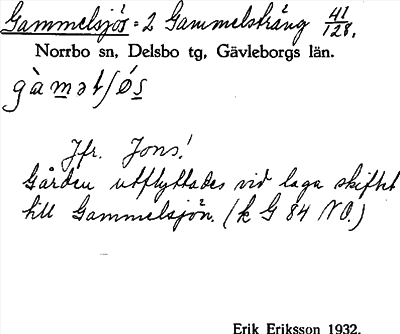 Gammelsjös = 2 Gammelsträng 41/128.
Norrbo sn, Delsbo tg, Gävleborgs län.
gàməlʃǿs
Jfr. Jons!
Gården utflyttades vid laga skiftet
till Gammelsjön. (k G 84 NO.)
Erik Eriksson 1932.